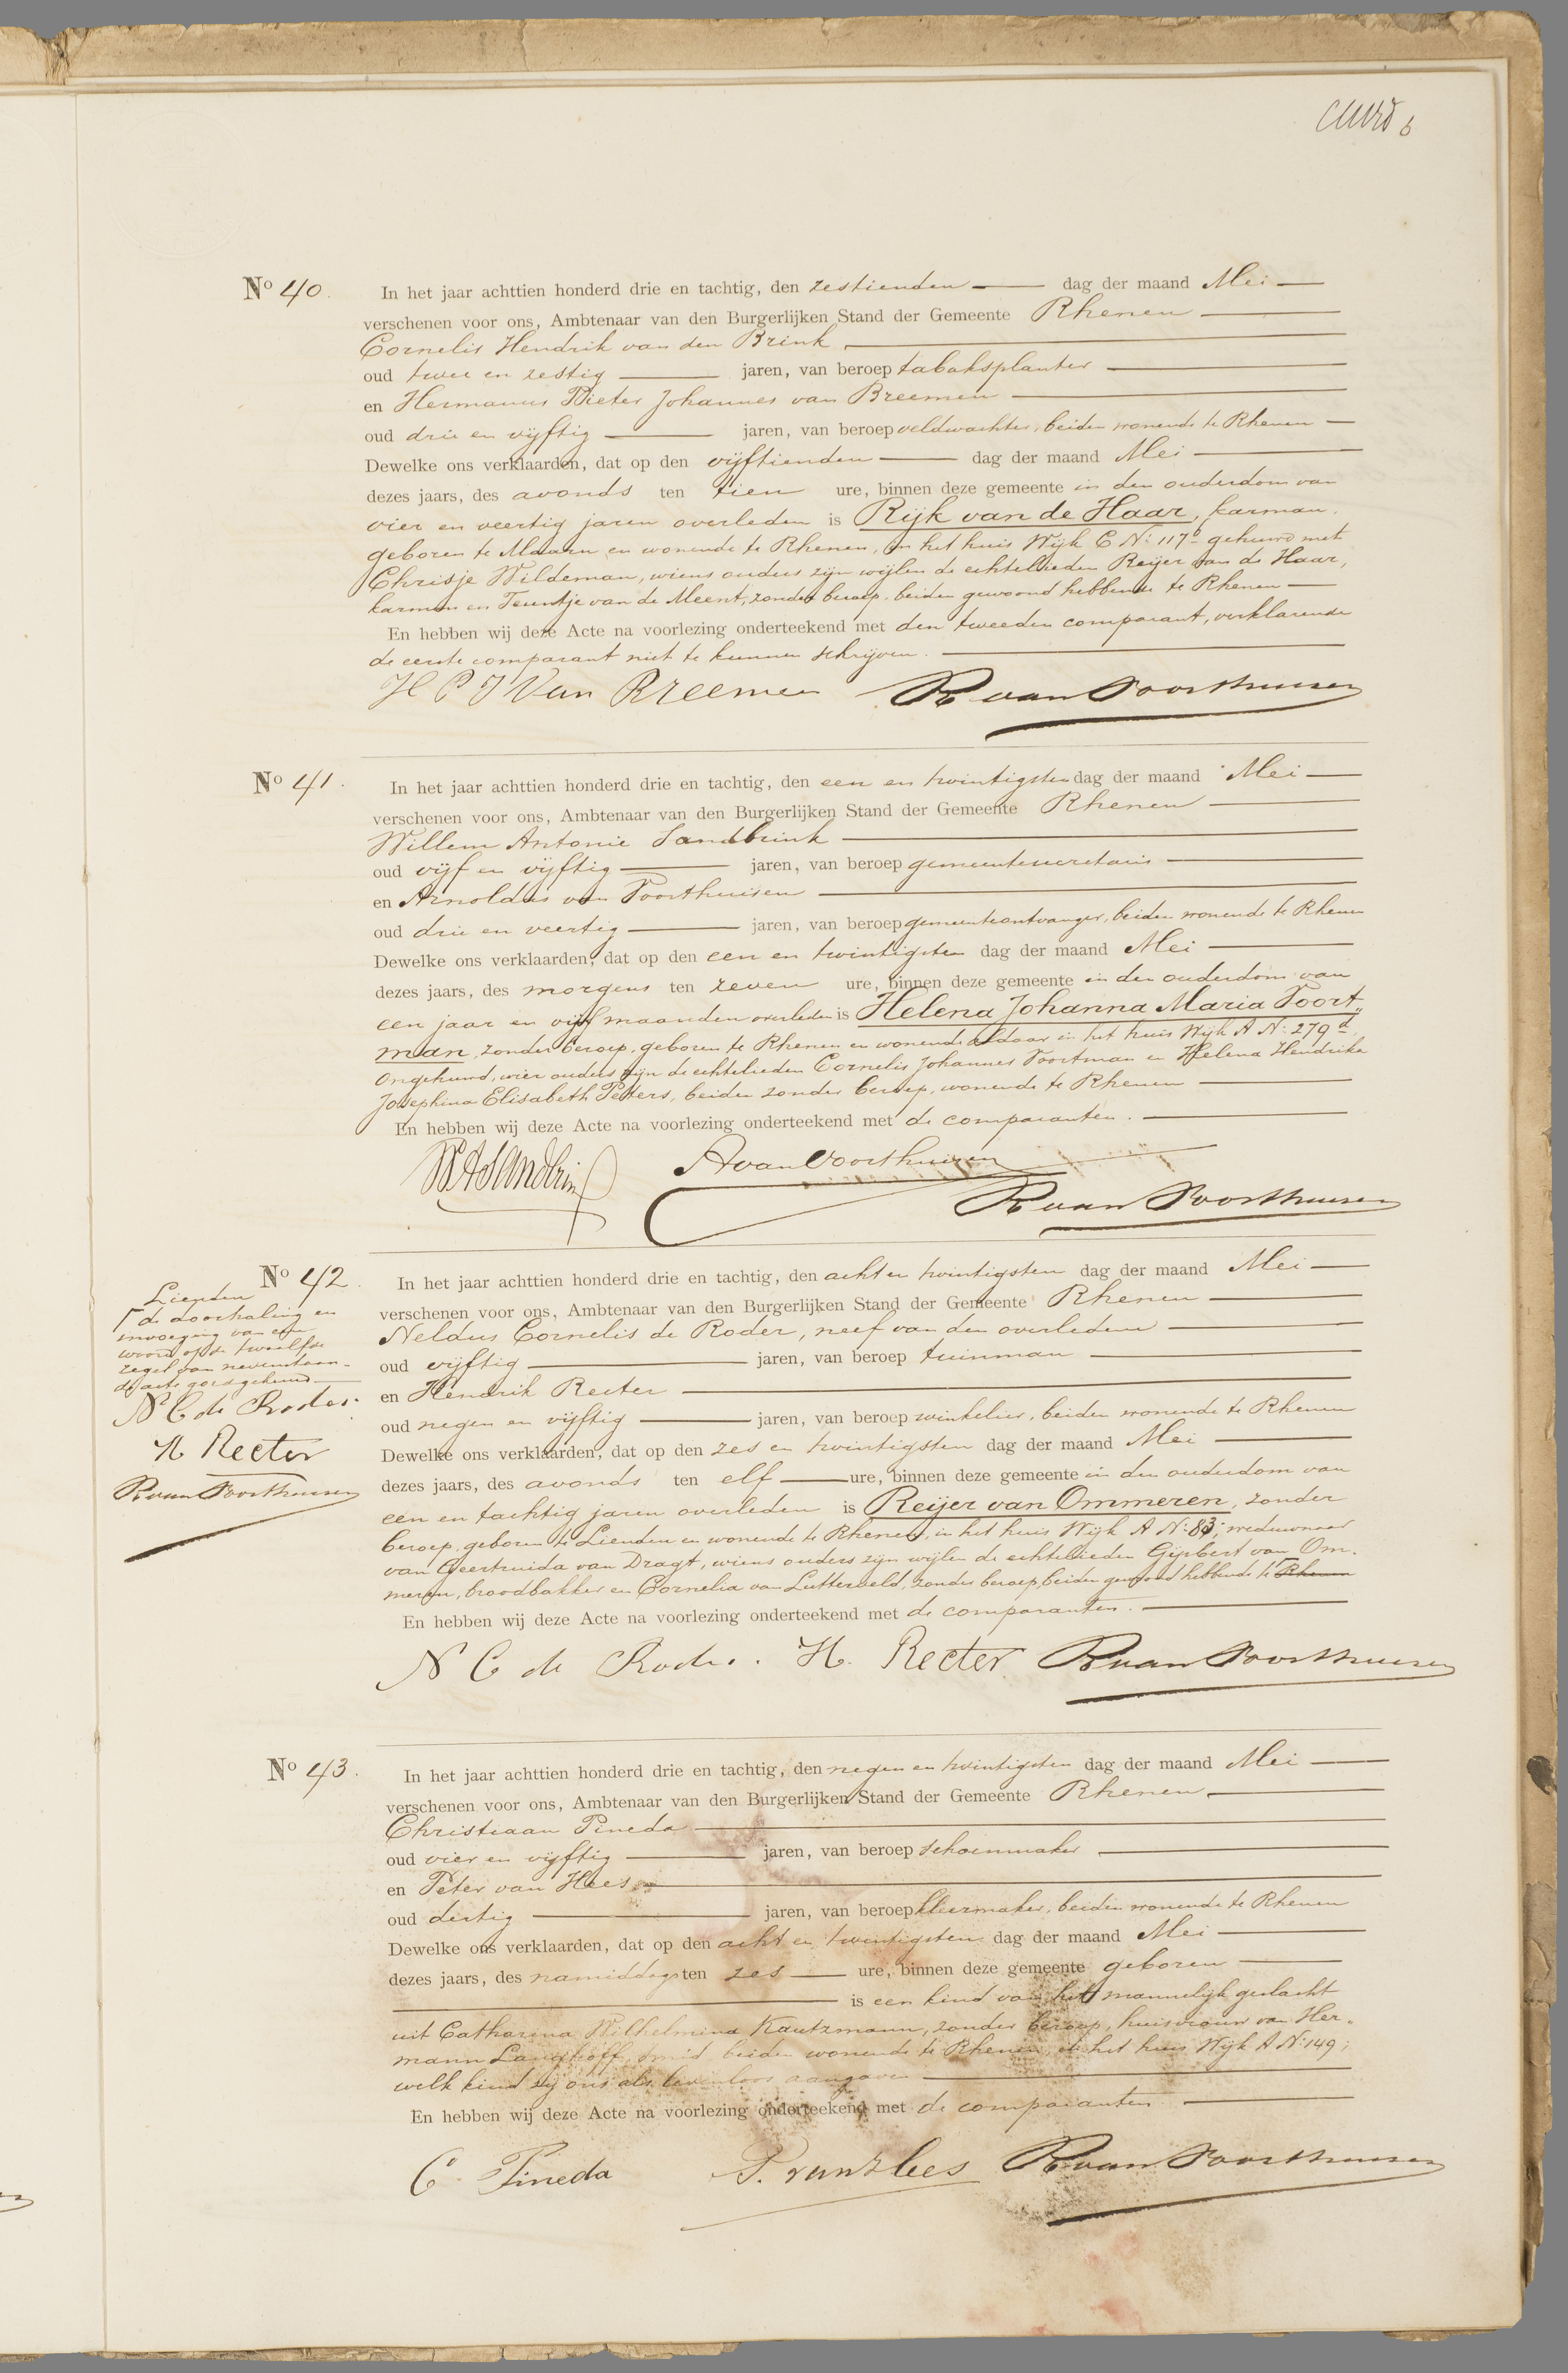 No 40. In het jaar achttien honderd drie en tachtig, den zestienden dag der maand Mei
verschenen voor ons, Ambtenaar van den Burgerlijken Stand der Gemeente Rhenen
Cornelis Hendrik van den Brink
oud twee en zestig jaren, van beroep tabaksplanter
en Hermanus Pieter Johannes van Breemen
oud drie en vijftig jaren, van beroep veldwachter, beiden wonende te Rhenen
Dewelke ons verklaarden, dat op den vijftienden dag der maand Mei
dezes jaars, des avonds ten tien ure, binnen deze gemeente in den ouderdom van
vier en veertig jaren overleden is Rijk van de Haar, karman,
geboren te Maarn en wonende te Rhenen, in het huis Wijk C No: 117 gehuwd met
Chrisje Wildeman, wiens ouders zijn wijlen de echtelieden Reijer van de Haar,
karman en Teuntje van de Meent, zonder beroep, beiden gewoond hebbende te Rhenen
En hebben wij deze Acte na voorlezing onderteekend met den tweeden comparant, verklarende
de eerste comparant niet te kunnen schrijven.
H P J Van Breemen R van Voorthuisen
No 41. In het jaar achttien honderd drie en tachtig, den een en twintigsten dag der maand Mei
verschenen voor ons, Ambtenaar van den Burgerlijken Stand der Gemeente Rhenen
Willem Antonie Sandbrink
oud vijf en vijftig jaren, van beroep gemeentesecretaris
en Arnoldus van Voorthuisen
oud drie en veertig jaren, van beroep gemeenteontvanger, beiden wonende te Rhenen
Dewelke ons verklaarden, dat op den een en twintigsten dag der maand Mei
dezes jaars, des morgens ten zeven ure, binnen deze gemeente in den ouderdom van
een jaar en vijf maanden overleden is Helena Johanna Maria Voort„
man, zonder beroep, geboren te Rhenen en wonende aldaar in het huis Wijk A No: 279d,
ongehuwd, wier ouders zijn de echtelieden Cornelis Johannes Voortman en Helena Hendrika
Josephina Elisabeth Petters, beiden zonder beroep, wonende te Rhenen
En hebben wij deze Acte na voorlezing onderteekend met de comparanten.
WA Sandbrink A van Voorthuisen
R van Voorthuisen
No 42. In het jaar achttien honderd drie en tachtig, den acht en twintigsten dag der maand Mei
verschenen voor ons, Ambtenaar van den Burgerlijken Stand der Gemeente Rhenen
Neldus Cornelis de Roder, neef van den overledene
oud vijftig jaren, van beroep tuinman
en Hendrik Recter
oud negen en vijftig jaren, van beroep winkelier, beiden wonende te Rhenen
Dewelke ons verklaarden, dat op den zes en twintigsten dag der maand Mei
dezes jaars, des avonds ten elf ure, binnen deze gemeente in den ouderdom van
een en tachtig jaren overleden is Reijer van Ommeren, zonder
beroep, geboren te Lienden en wonende te Rhenen, in het huis Wijk A No: 83; weduwnaar
van Geertruida van Dragt, wiens ouders zijn wijlen de echtelieden Gijsbert van Om„
meren, broodbakker en Cornelia van Lutterveld, zonder beroep, beiden gewoond hebbende te Rhenen
En hebben wij deze Acte na voorlezing onderteekend met de comparanten.
N C de Roder. H. Recter R van Voorthuisen
Lienden
de doorhaling en
invoeging van een
woord op de twaalfde
regel van nevenstaan-
de acte goedgekeurd
N C de Roder.
H Recter
R van Voorthuisen
No 43. In het jaar achttien honderd drie en tachtig, den negen en twintigsten dag der maand Mei
verschenen voor ons, Ambtenaar van den Burgerlijken Stand der Gemeente Rhenen
Christiaan Pineda
oud vier en vijftig jaren, van beroep schoenmaker
en Peter van Hees
oud dertig jaren, van beroep kleermaker, beiden wonende te Rhenen
Dewelke ons verklaarden, dat op den acht en twintigsten dag der maand Mei
dezes jaars, des namiddags ten zes ure, binnen deze gemeente geboren
is een kind van het mannelijk geslacht
uit Catharina Wilhelmina Kautzmann, zonder beroep, huisvrouw van Her„
mann Langhoff, smid, beiden wonende te Rhenen, in het huis Wijk A No: 149;
welk kind zij ons als levenloos aangaven
En hebben wij deze Acte na voorlezing onderteekend met de comparanten
C Pineda P. van Hees R van Voorthuisen